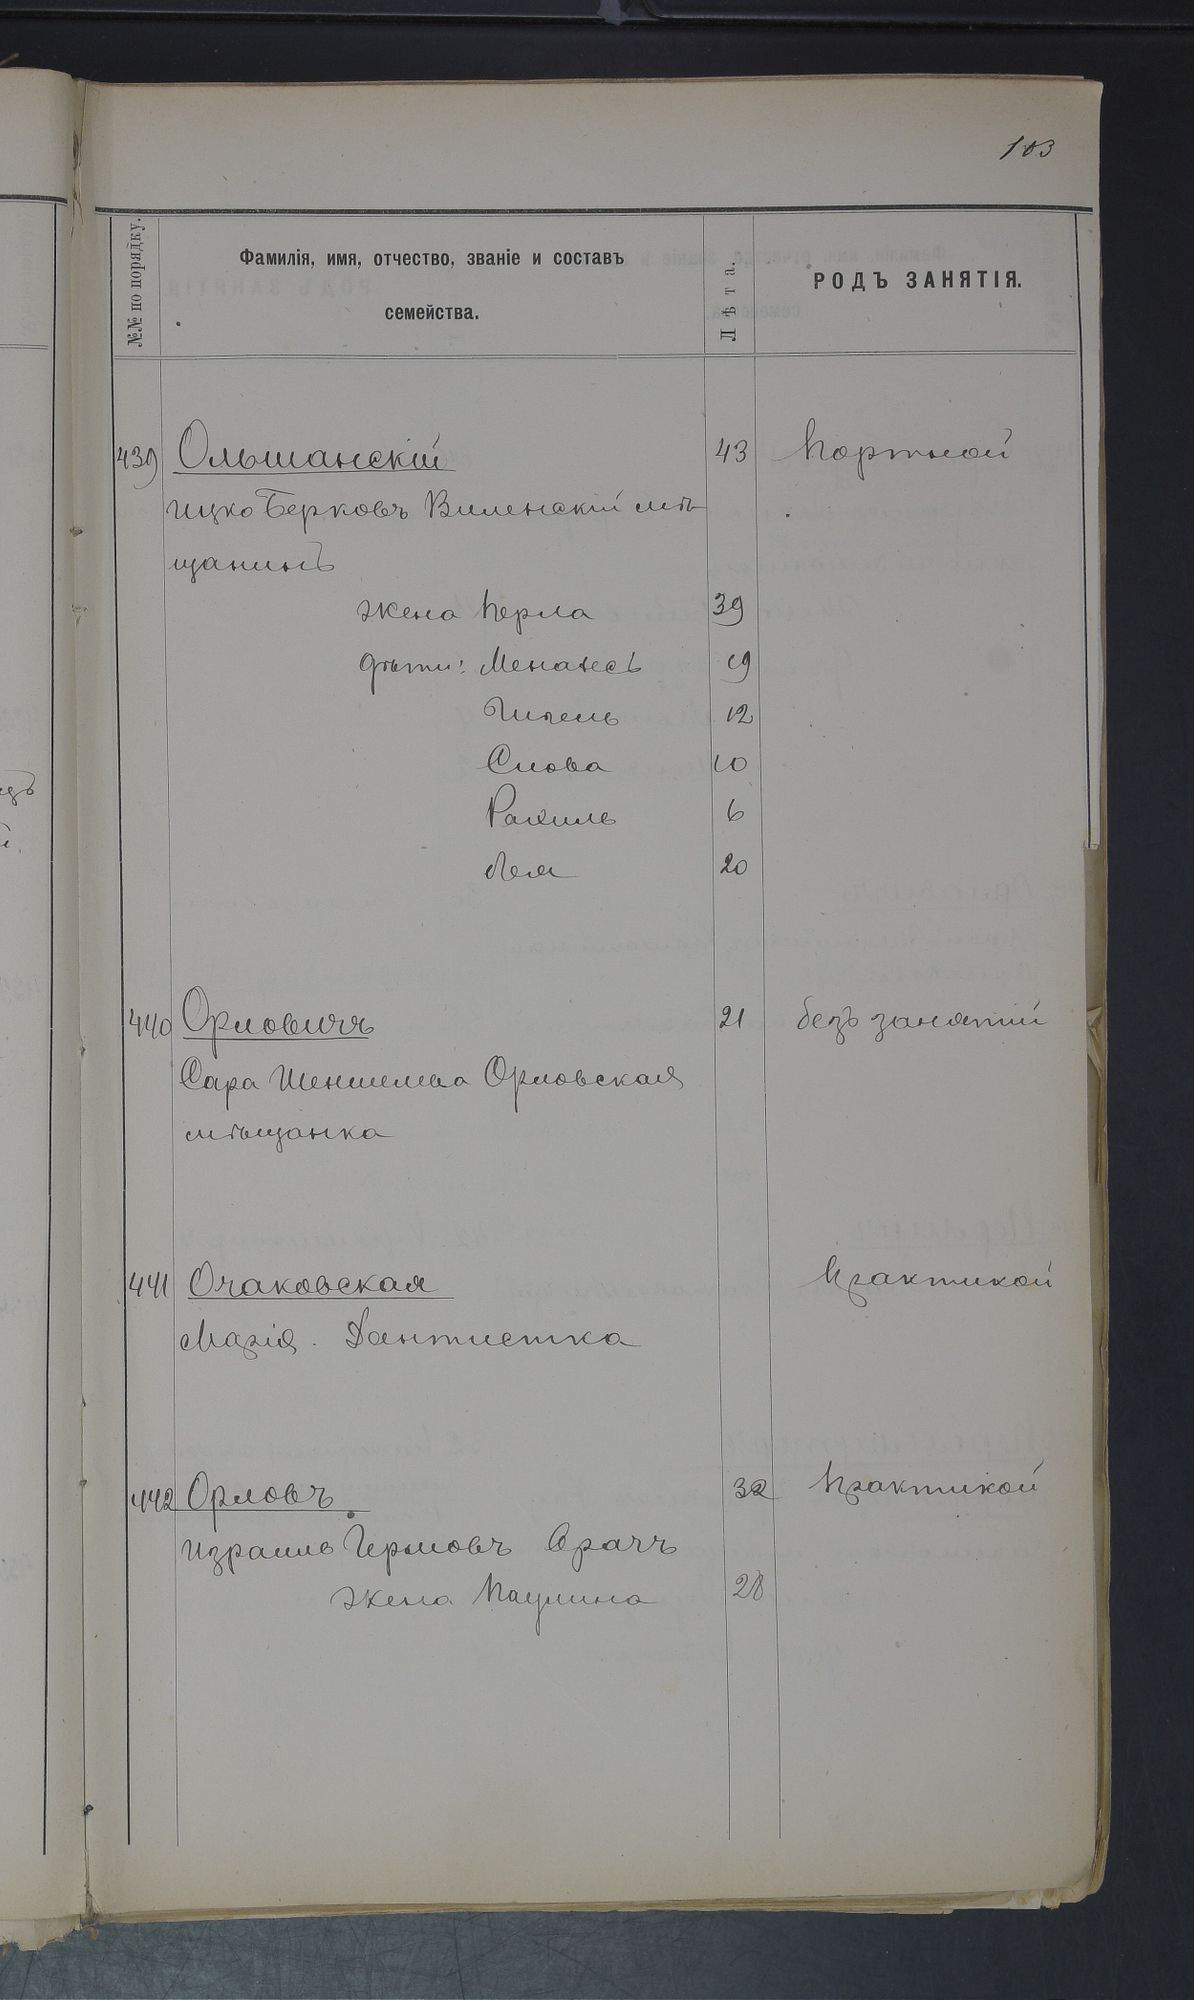 103
№№ по порядку.
Фамилія, имя, отчество, званіе и составъ
семейства.
Лѣта.
РОДЪ ЗАНЯТІЯ.
439 Ольшанскій 43 Портной
Ицко Берковъ Виленскій мѣ-
щанинъ
жена Перла 39
дѣти: 19
12
10
Рахиль 6
Лея 20
440 Орловичъ 21 безъ занятій
Сара Орловская
мѣщанка
441 Очаковская Практикой
Марія. Дантистка
442 Орловъ 32 Практикой
Израиль Врачъ
жена Паулина 28